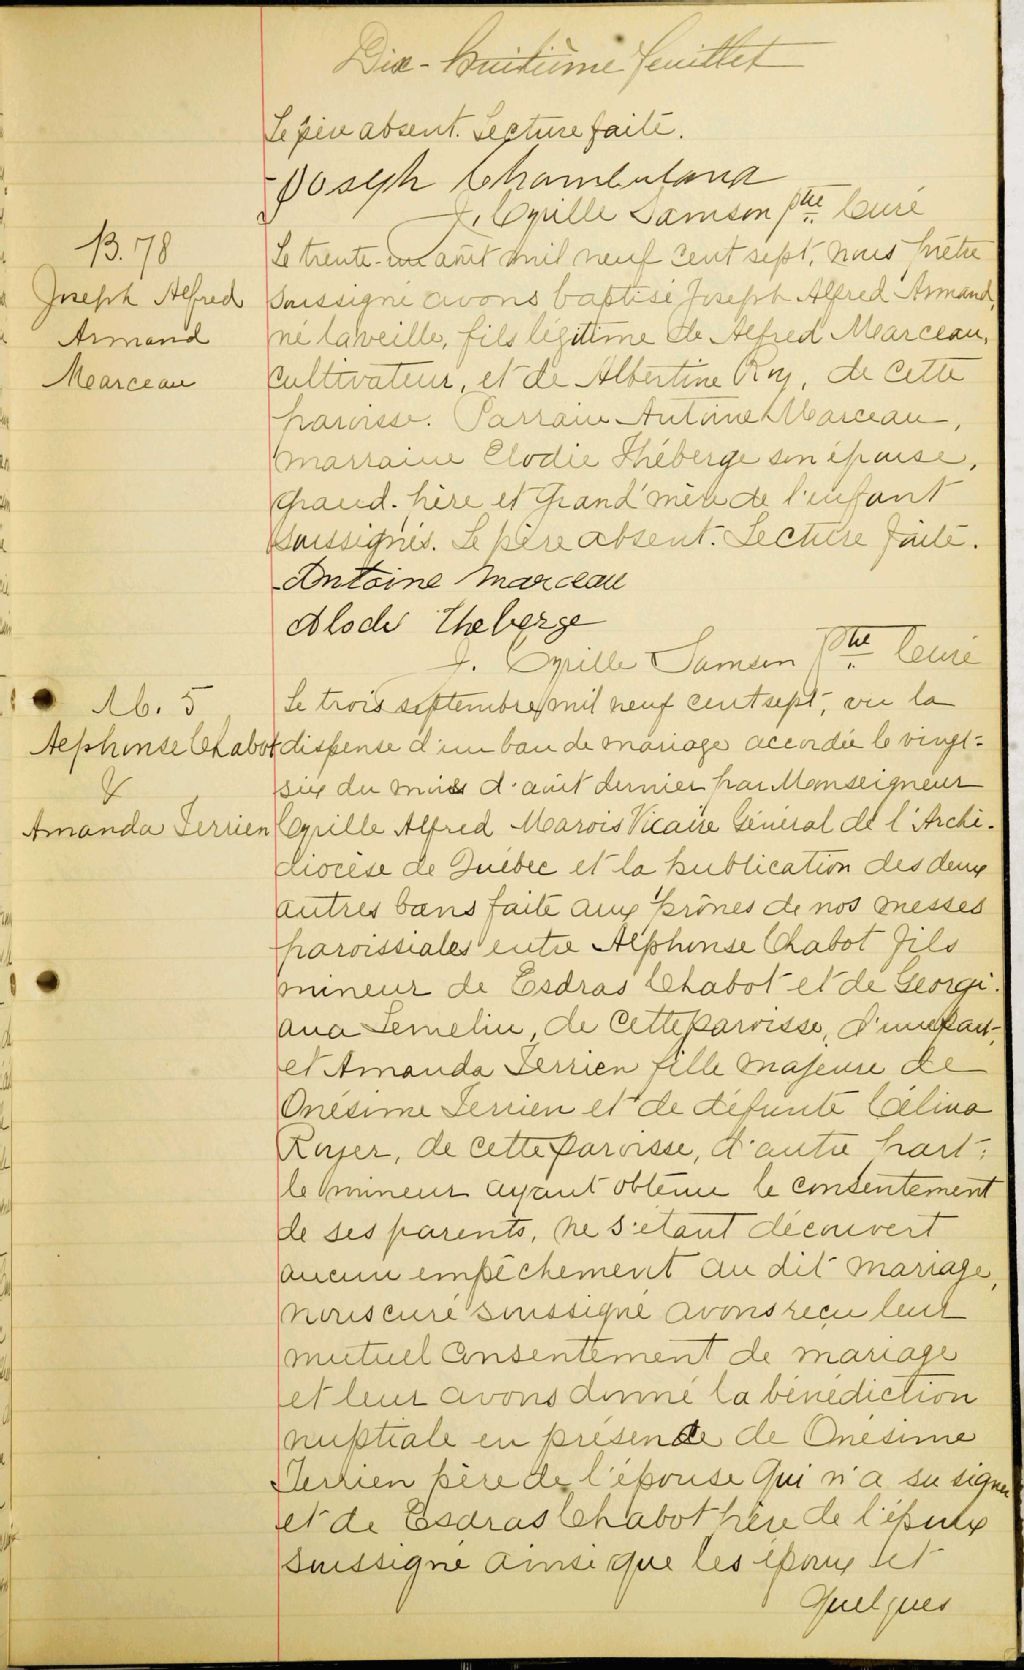 Dix-huitième feuillet
Le père absent. Lecture faite.
Joseph Chamberland
J. Cyrille Samson Ptre Curé
B. 78
Joseph Alfred
Armand
Marceau
Le trente-un août mil neuf cent sept, nous prêtre
soussigné avons baptisé Joseph Alfred Armand,
né la veille, fils légitime de Alfred Marceau,
cultivateur, et de Albertine Roy, de cette
paroisse. Parrain Antoine Marceau,
marraine Elodie Théberge son épouse,
grand-père et grand'mère de l'enfant
soussignés. Le père absent. Lecture faite.
Antoine Marceau
Alodi Theberge
J. Cyrille Samson Ptre Curé
M. 5
Alphonse Chabot
&
Amanda Terrien
Le trois septembre mil neuf cent sept, vu la
dispense d'un ban de mariage accordée le vingt-
six du mois d'août dernier par Monseigneur
Cyrille Alfred Marois Vicaire Général de l'Archi-
diocèse de Québec et la publication des deux
autres bans faite aux prônes de nos messes
paroissiales entre Alphonse Chabot fils
mineur de Esdras Chabot et de Georgi-
ana Lemelin, de cette paroisse, d'une part,
et Amanda Terrien fille majeure de
Onésime Terrien et de défunte Célina
Royer, de cette paroisse, d'autre part;
le mineur ayant obtenu le consentement
de ses parents, ne s'étant découvert
aucun empêchement au dit mariage,
nous curé soussigné avons reçu leur
mutuel consentement de mariage
et leur avons donné la bénédiction
nuptiale en présence de Onésime
Terrien père de l'épouse qui n'a su signer
et de Esdras Chabot père de l'époux
soussigné ainsi que les époux et
quelques